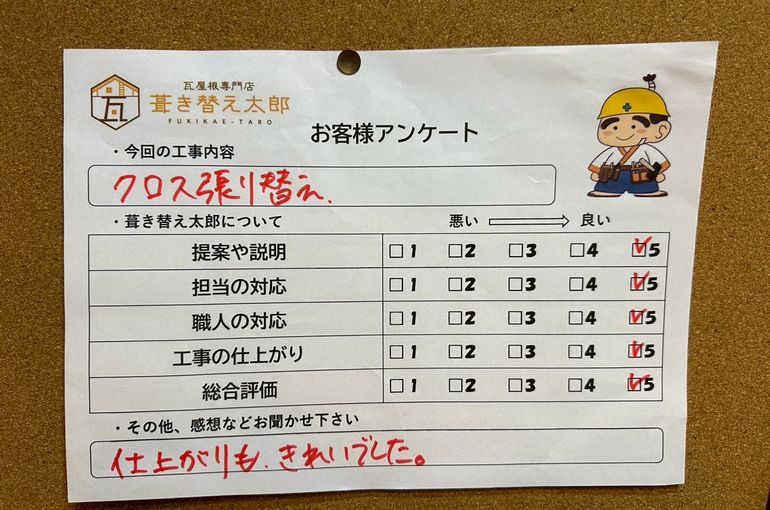 瓦屋根専門店
葺き替え太郎
FUKIKAE-TARO
お客様アンケート
・今回の工事内容
クロス張り替え.
・葺き替え太郎について 悪い 良い
提案や説明 □1 □2 □3 □4 ☑5
担当の対応 □1 □2 □3 □4 ☑5
職人の対応 □1 □2 □3 □4 ☑5
工事の仕上がり □1 □2 □3 □4 ☑5
総合評価 □1 □2 □3 □4 ☑5
・その他、感想などお聞かせ下さい
仕上がりも、きれいでした。